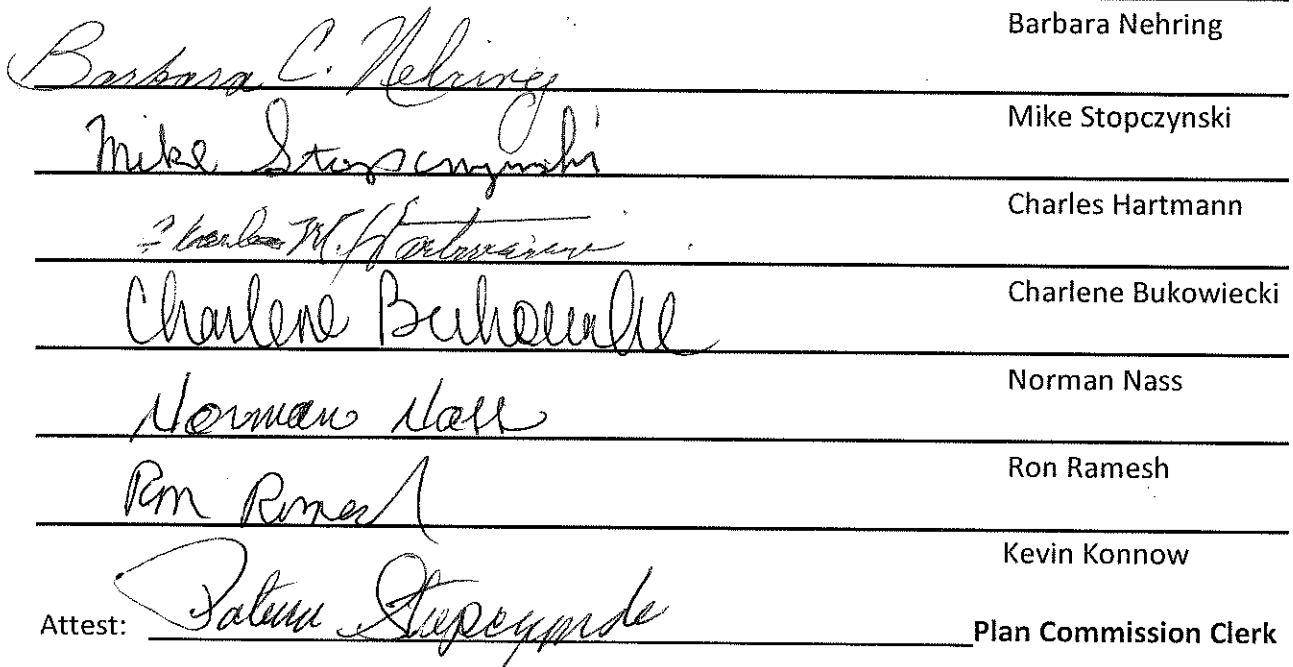 Barbara Nehring
Barbara C. Nehring
Mike Stopczynski
Mike Stopczynski
Charles Hartmann
Charles M. Hartmann
Charlene Bukowiecki
Charlene
Norman Nass
Norman Nass
Ron Ramesh
Ron Ramesh
Kevin Konnow
Attest: Stopczynski Plan Commission Clerk